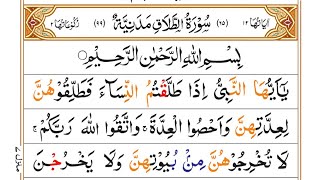 اٰيَاتُهَا ١٢ (٦٥) سُوْرَةُ الطَّلَاقِ مَدَنِيَّةٌ (٩٩) رُكُوْعَاتُهَا ٢
بِسْمِ اللّٰهِ الرَّحْمٰنِ الرَّحِيْمِ
يٰۤاَيُّهَا النَّبِىُّ اِذَا طَلَّقْتُمُ النِّسَآءَ فَطَلِّقُوْهُنَّ
لِعِدَّتِهِنَّ وَاَحْصُوا الْعِدَّةَ ۚ وَاتَّقُوا اللّٰهَ رَبَّكُمْ ۚ
لَا تُخْرِجُوْهُنَّ مِنْۢ بُيُوْتِهِنَّ وَلَا يَخْرُجْنَ